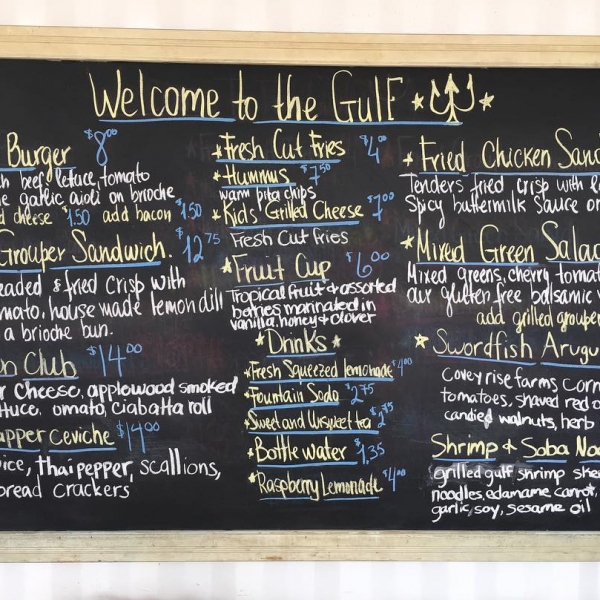 Welcome to the Gulf
Burger $8.00
beef, letuce, tomato
garlic aioli on brioche
cheese $1.50 add bacon $1.50
Grouper Sandwich. $12.75
& fried crisp with
house made lemon dill
a brioche bun.
Club $14.00
cheese, applewood smoked
omato, ciabatta roll
Ceviche $14.00
thai pepper, scallions,
crackers
Fresh Cut Fries $4.00
Hummus $7.50
warm pita chips
Kids Grilled Cheese $7.00
Fresh Cut Fries
Fruit Cup $6.00
Tropical fruit & assorted
berries marinated in
vanilla, honey & clover
Drinks
Fresh Squeezed lemonade $4.00
Fountain Soda $2.75
Sweet and Unsweet tea $2.75
Bottle water $1.35
Raspberry Lemonade $4.00
Fried Chicken
Tenders fried crisp with
Spicy buttermilk sauce
Mixed Green
Mixed greens, cherry
our gluten free balsamic
add grilled grouper
Swordfish
Covey rise farms
tomatoes, shaved red
candied walnuts, herb
Shrimp & Soba
grilled gulf shrimp
noodles, edamame, carrot,
garlic, soy, sesame oil